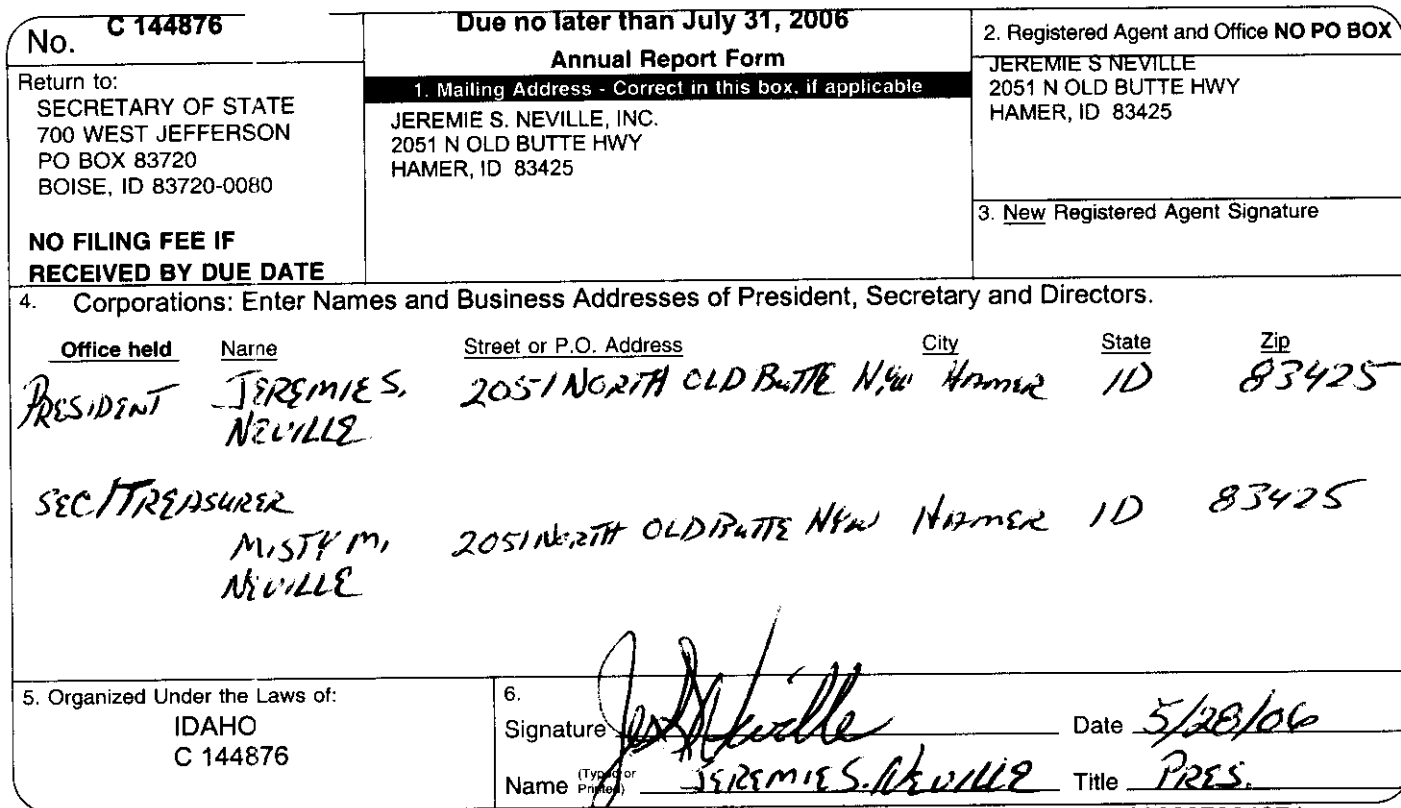 No. C 144876
Return to:
SECRETARY OF STATE
700 WEST JEFFERSON
PO BOX 83720
BOISE, ID 83720-0080
NO FILING FEE IF
RECEIVED BY DUE DATE
Due no later than July 31, 2006
Annual Report Form
1. Mailing Address - Correct in this box, if applicable
JEREMIE S. NEVILLE, INC.
2051 N OLD BUTTE HWY
HAMER, ID 83425
2. Registered Agent and Office NO PO BOX
JEREMIE S NEVILLE
2051 N OLD BUTTE HWY
HAMER, ID 83425
3. New Registered Agent Signature
4. Corporations: Enter Names and Business Addresses of President, Secretary and Directors.
Office held Name Street or P.O. Address City State Zip
PRESIDENT JEREMIE S. 2051 NORTH OLD BUTTE HWY HAMER ID 83425
NEVILLE
SEC/TREASURER
MISTY M. 2051 NORTH OLD BUTTE HWY HAMER ID 83425
NEVILLE
5. Organized Under the Laws of:
IDAHO
C 144876
6.
Signature Jer S Neville Date 5/28/06
Name (Typed or Printed) JEREMIE S. NEVILLE Title PRES.